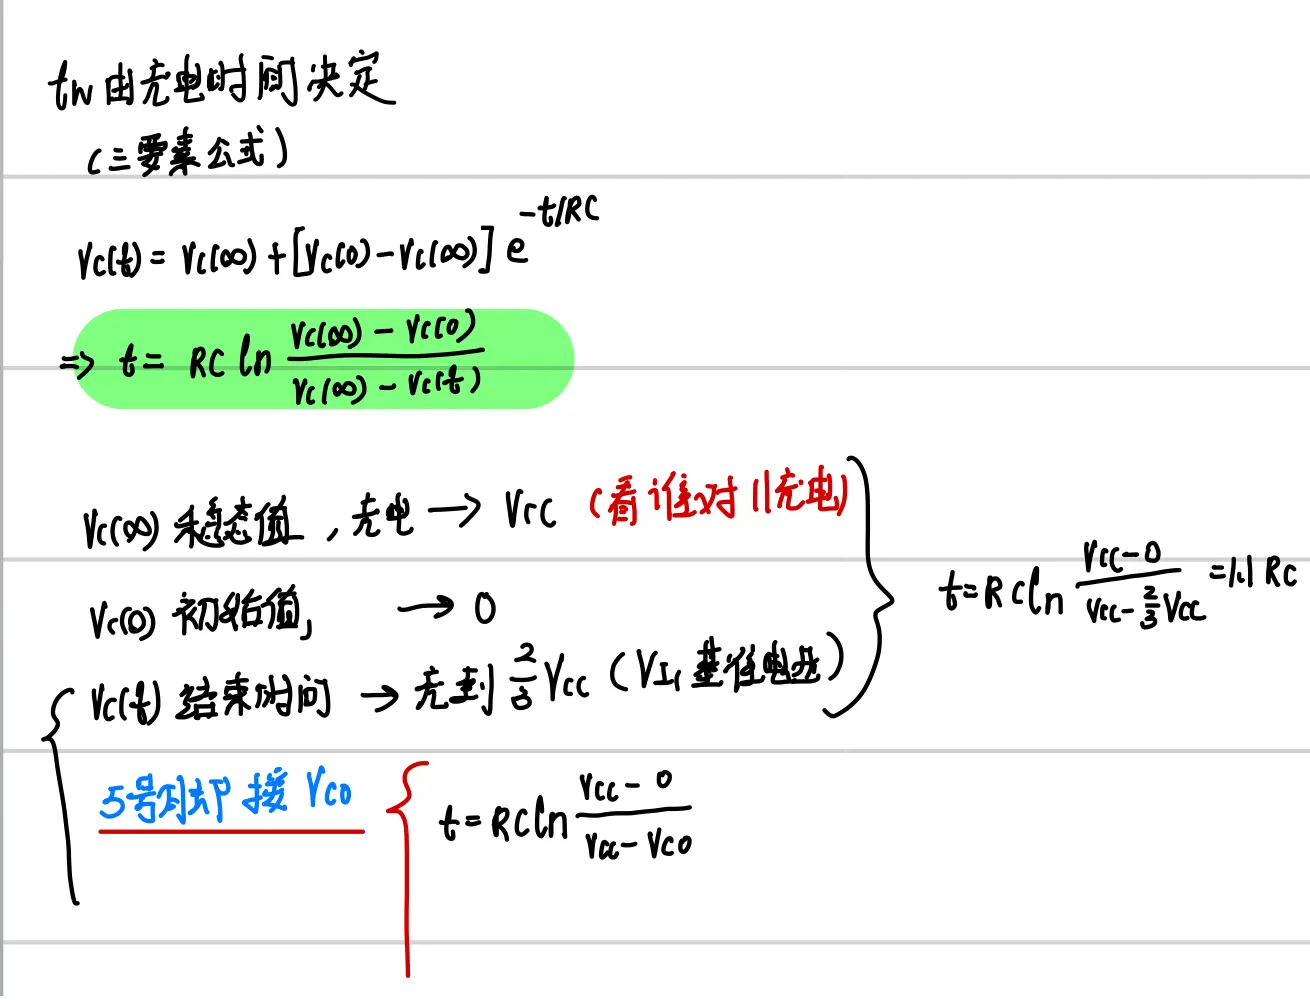 tw由充电时间决定
(三要素公式)
Vc(t) = Vc(∞) + [Vc(0) - Vc(∞)] e^{-t/RC}
⇒ t = RC ln (Vc(∞) - Vc(0))/(Vc(∞) - Vc(t))
Vc(∞) 稳态值, 充电 → Vcc (看谁对11充电)
Vc(0) 初始值, → 0
Vc(t) 结束时间 → 充到 2/3 Vcc (VI1 基准电压)
t = RC ln (Vcc - 0)/(Vcc - 2/3 Vcc) = 1.1 RC
5号 接 Vco
t = RC ln (Vcc - 0)/(Vcc - Vco)